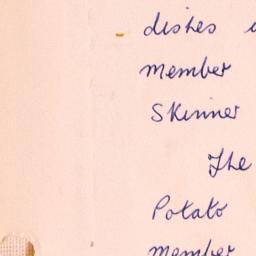 dishes
member
Skinner
The
Potato
member